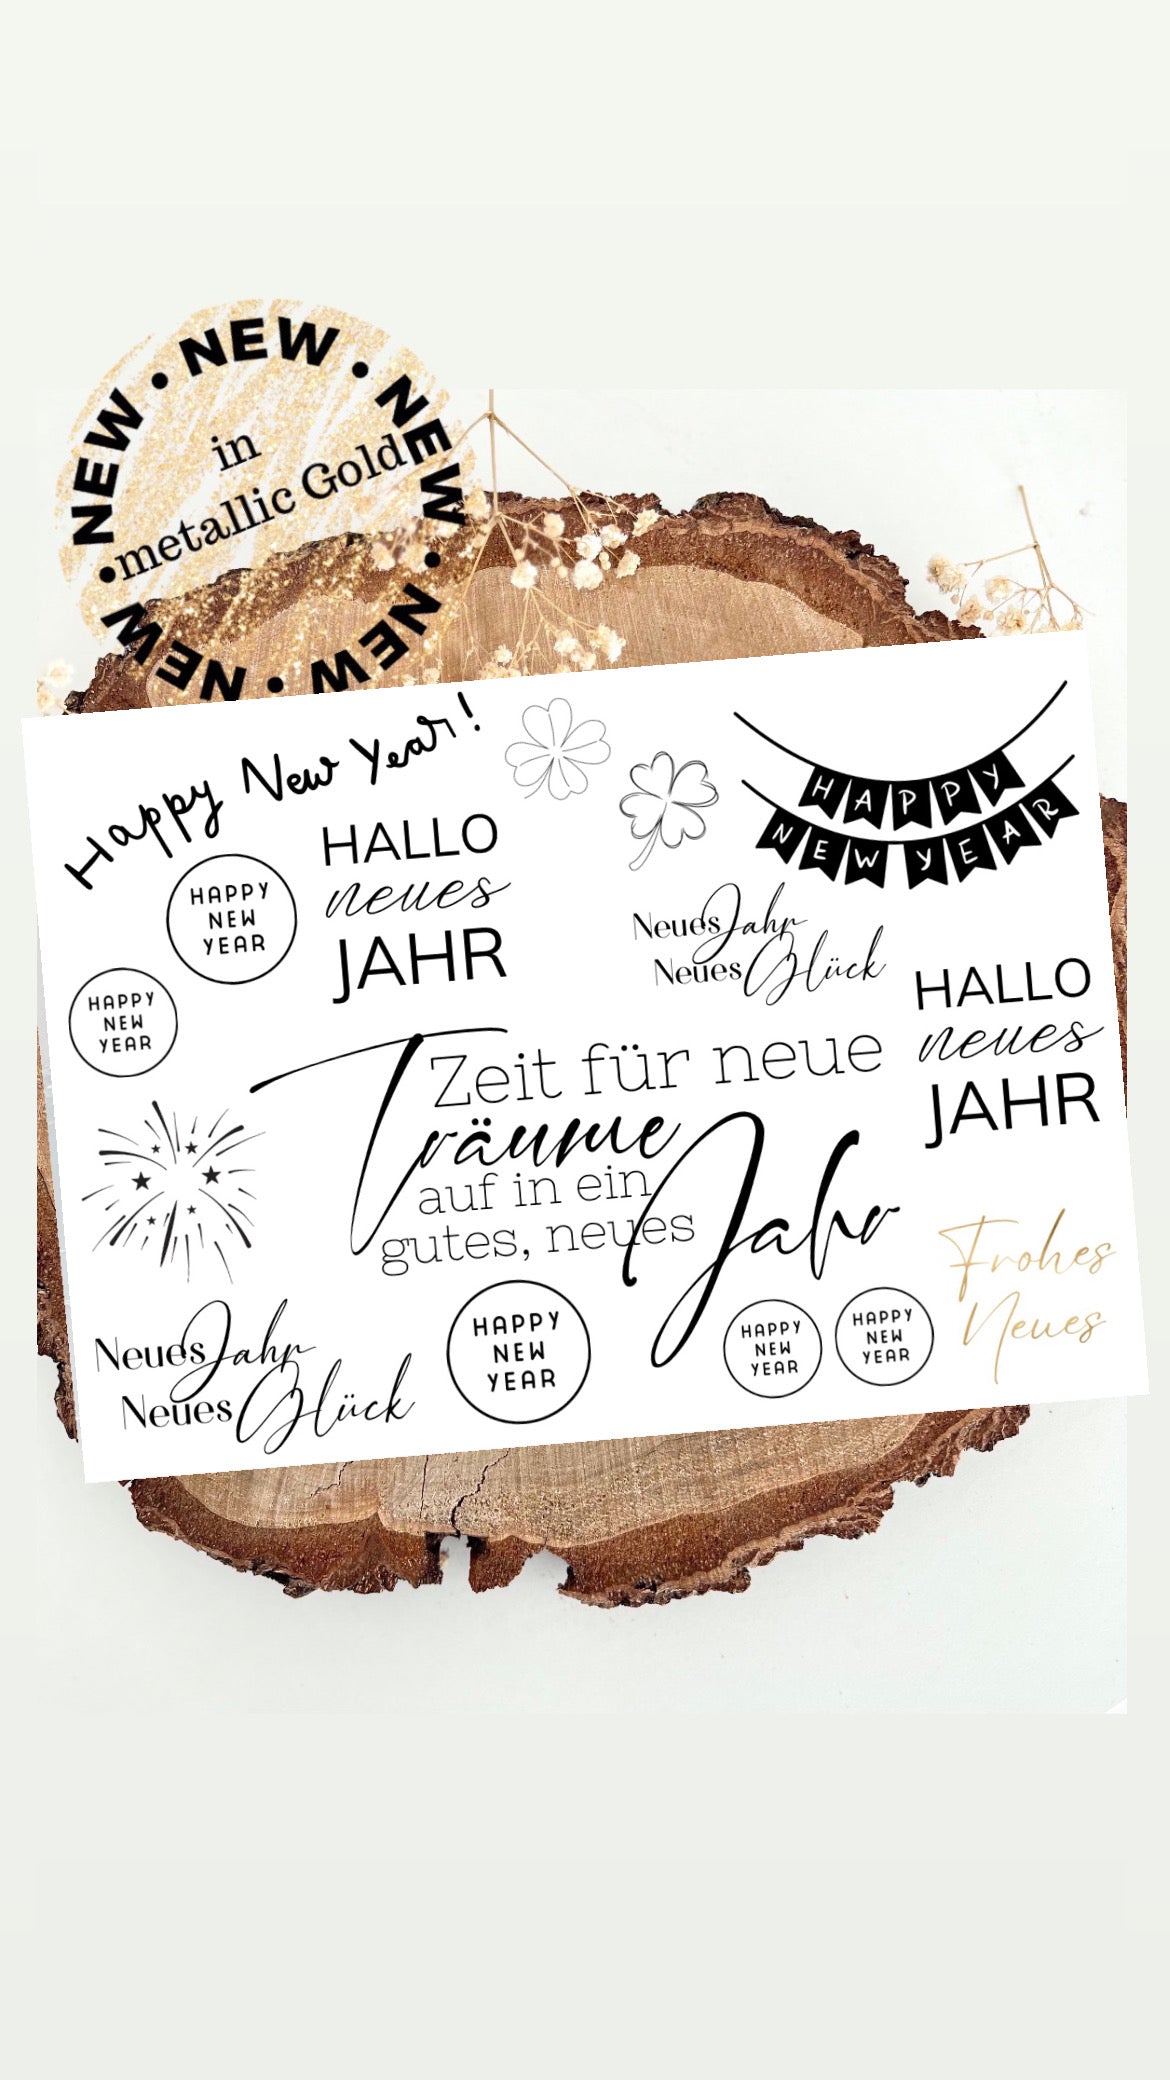 NEW • NEW • NEW
NEW • NEW • NEW • NEW •
in
metallic Gold
Happy New Year!
HAPPY
NEW YEAR
HALLO
neues
JAHR
HAPPY
NEW
YEAR
HAPPY
NEW
YEAR
Neues Jahr
Neues Glück
HALLO
neues
JAHR
Zeit für neue
Träume
auf in ein
gutes, neues
Jahr
Frohes
Neues
Neues Jahr
Neues Glück
HAPPY
NEW
YEAR
HAPPY
NEW
YEAR
HAPPY
NEW
YEAR